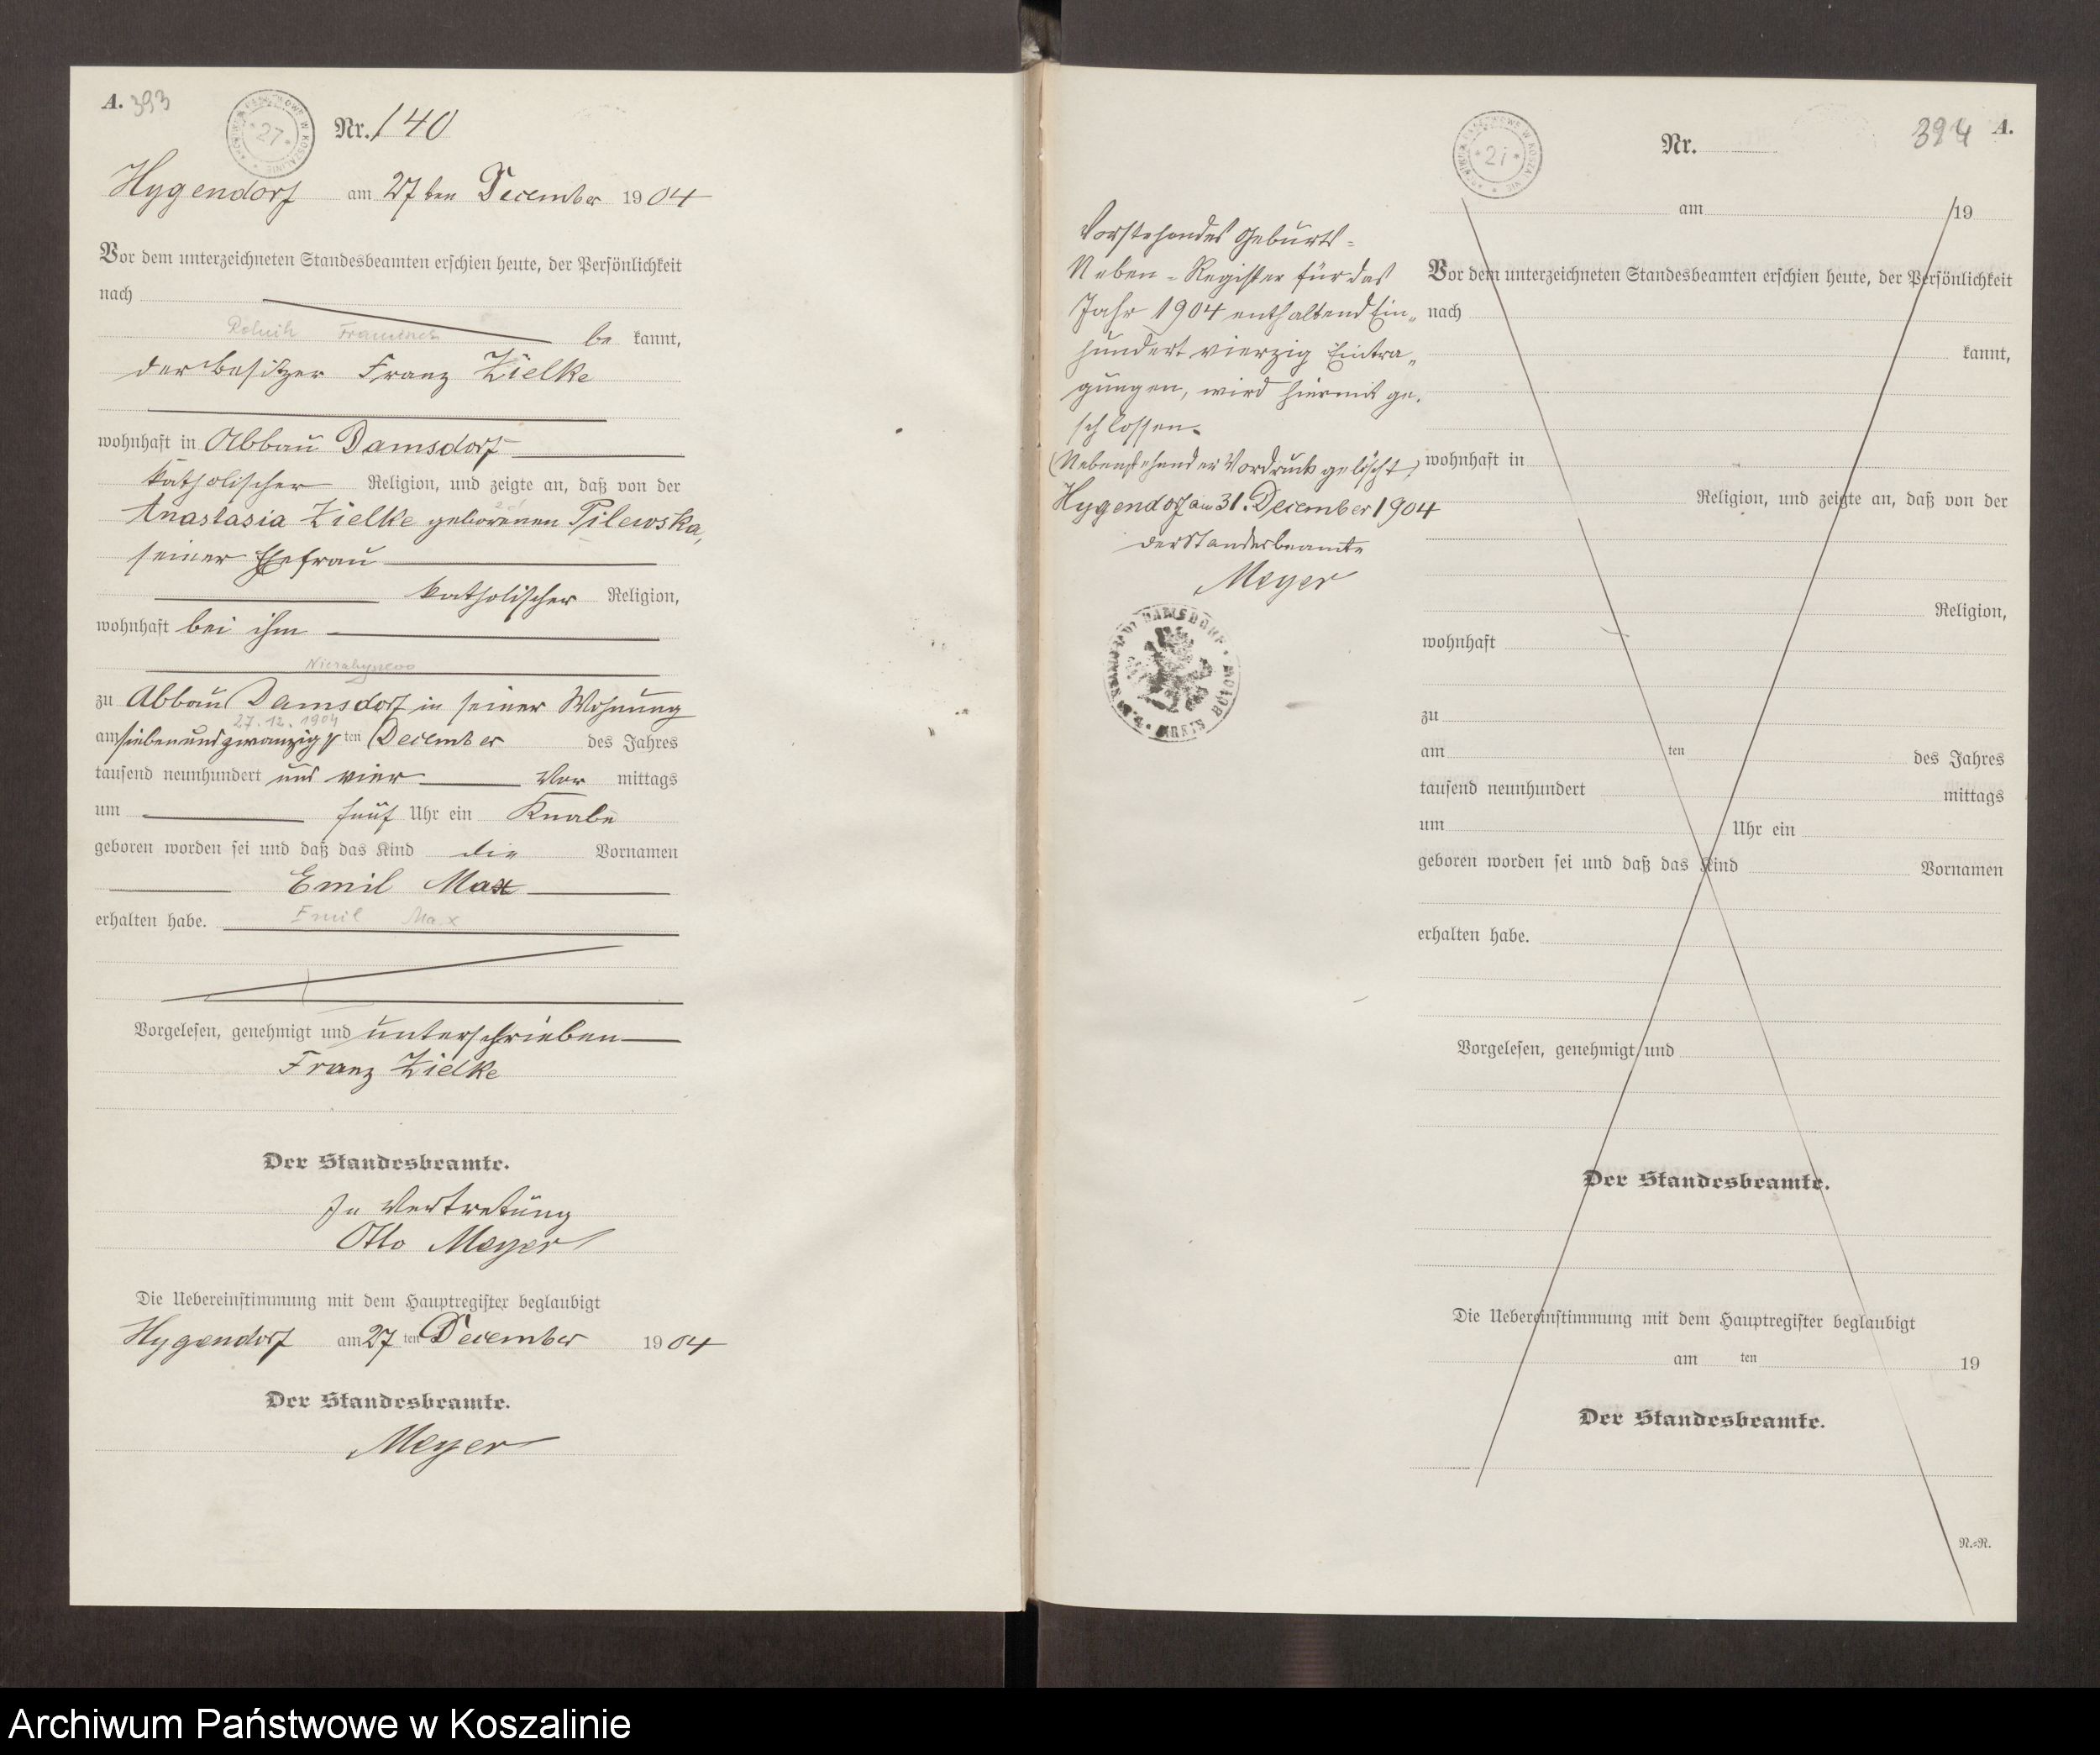 A. 393
Nr. 140
Hygendorf am 27ten December 1904
Vor dem unterzeichneten Standesbeamten erschien heute, der Persönlichkeit
nach
Rolnik Franciszek be kannt,
der Besitzer Franz Zielke
wohnhaft in Abbau Damsdorf
katholischer Religion, und zeigte an, daß von der
Anastasia Zielke geborenen Pilewska,
seiner Ehefrau
katholischer Religion,
wohnhaft bei ihm
zu Abbau Damsdorf in seiner Wohnung
27.12.1904
am siebenundzwanzig ten December des Jahres
tausend neunhundert und vier Vor mittags
um fünf Uhr ein Knabe
geboren worden sei und daß das Kind die Vornamen
Emil Max
erhalten habe. Emil Max
Vorgelesen, genehmigt und unterschrieben
Franz Zielke
Der Standesbeamte.
In Vertretung
Otto Meyer
Die Uebereinstimmung mit dem Hauptregister beglaubigt
Hygendorf am 27 ten December 1904
Der Standesbeamte.
Meyer
Vorstehendes Geburts-
Neben-Register für das
Jahr 1904 enthaltend Ein-
hundert vierzig Eintra-
gungen, wird hiermit ge-
schlossen.
(Nebenstehender Vordruck gelöscht)
Hygendorf am 31. December 1904
Der Standesbeamte
Meyer
394 A.
Nr.
am 19
Vor dem unterzeichneten Standesbeamten erschien heute, der Persönlichkeit
nach
kannt,
wohnhaft in
Religion, und zeigte an, daß von der
Religion,
wohnhaft
zu
am ten des Jahres
tausend neunhundert mittags
um Uhr ein
geboren worden sei und daß das Kind Vornamen
erhalten habe.
Vorgelesen, genehmigt und
Der Standesbeamte.
Die Uebereinstimmung mit dem Hauptregister beglaubigt
am ten 19
Der Standesbeamte.
N.=R.
Archiwum Państwowe w Koszalinie